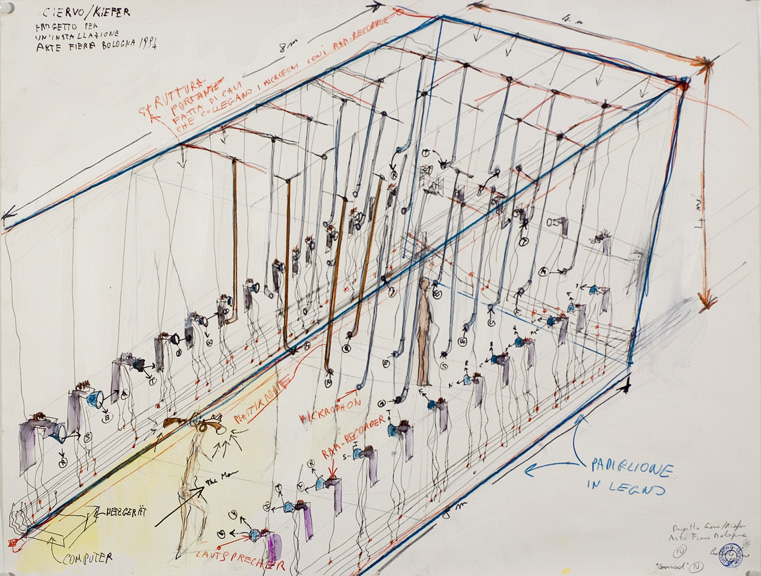 CIERVO/KIEFER
PROGETTO PER
UN'INSTALLAZIONE
ARTE FIERA BOLOGNA 1994
8 m
4 m
STRUTTURA
PORTANTE
FATTA DI CAVI
CHE COLLEGANO I MICROFONI CON I RAM-RECORDER
4 m
MICROPHON
RAM-RECORDER
The Man
MESSGERÄT
COMPUTER
LAUTSPRECHER
8 m
PADIGLIONE
IN LEGNO
Progetto Ciervo/Kiefer
Arte Fiera Bologna